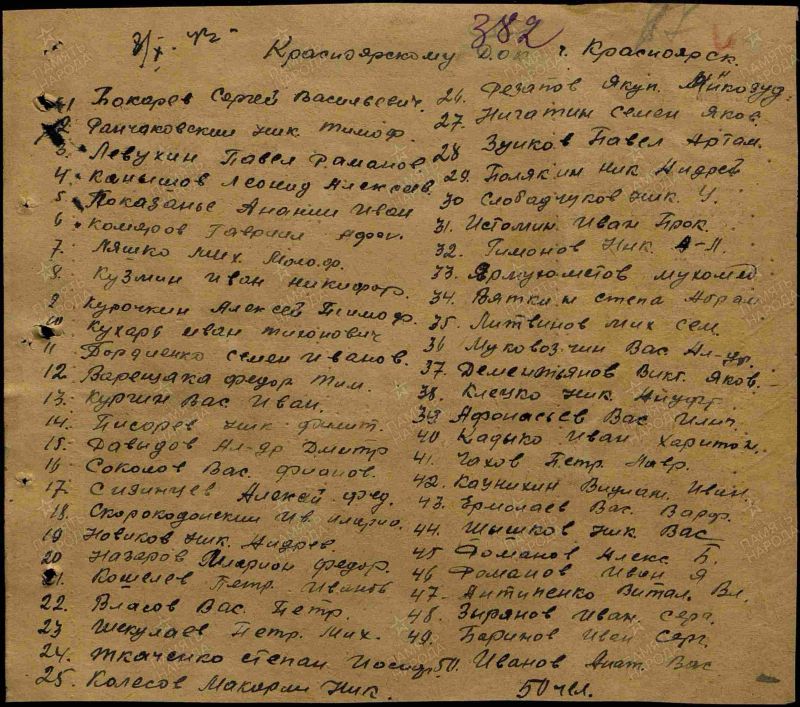 382
3/X-42
Красноярскому Док г. Красноярск.
1 Бокарев Сергей Васильевич
2 Ник. Тимоф.
3 Левухин Павел Раманов.
4. Канышов Леонид Алексеев.
5 Показанье Анании Иван
6. Комяров Гавриил Афон.
7. Ляшко Мих.
8. Кузмин Иван Никифор.
9 Курочкин Алексей Тимоф.
10 Кухарь Иван Тихонович
11 Бордиенко Семен Иванов.
12 Варещака Федор Тим.
13. Кургин Вас Иван.
14. Писорев Ник Филит.
15. Давидов Ал-др Дмитр
16 Соколов Вас.
17 Алексей Фед.
18. Ив. Иларио.
19 Новиков Ник. Андрев.
20 Назаров Ларион Федор.
21. Кошелев Петр Иванов
22. Власов Вас. Петр.
23 Шекулаев Петр. Мих.
24. Ткаченко Степан Иосиф.
25. Колесов Макарии Ник.
26. Резапов Якуп.
27. Нигатин Семен Яков.
28 Зуиков Павел Артам.
29. Полякин Ник Андрей
30 Слободчуков Ник. У.
31. Истомин Иван Прок.
32. Тимонов Ник. А-Л.
33. Ярмухометов Мухомед
34. Вяткин Степа Абрам
35. Литвинов Мих Сем.
36 Муковозчин Вас Ал-др.
37. Дементьянов Викт. Яков.
38. Клецко Ник
39 Афонасьев Вас Илич
40. Кадыко Иван Харитон.
41. Чахов Петр. Лавр.
42. Каунихин Иван
43. Ермолаев Вас. Варф.
44. Шышков Ник Вас
45 Романов Алекс Б.
46 Романов Иван Я
47. Антипенко Витал. Вл.
48. Зырянов Иван Серг.
49. Баринов Иван Серг.
50. Иванов Анат. Вас
50 чел.
ПАМЯТЬ НАРОДА